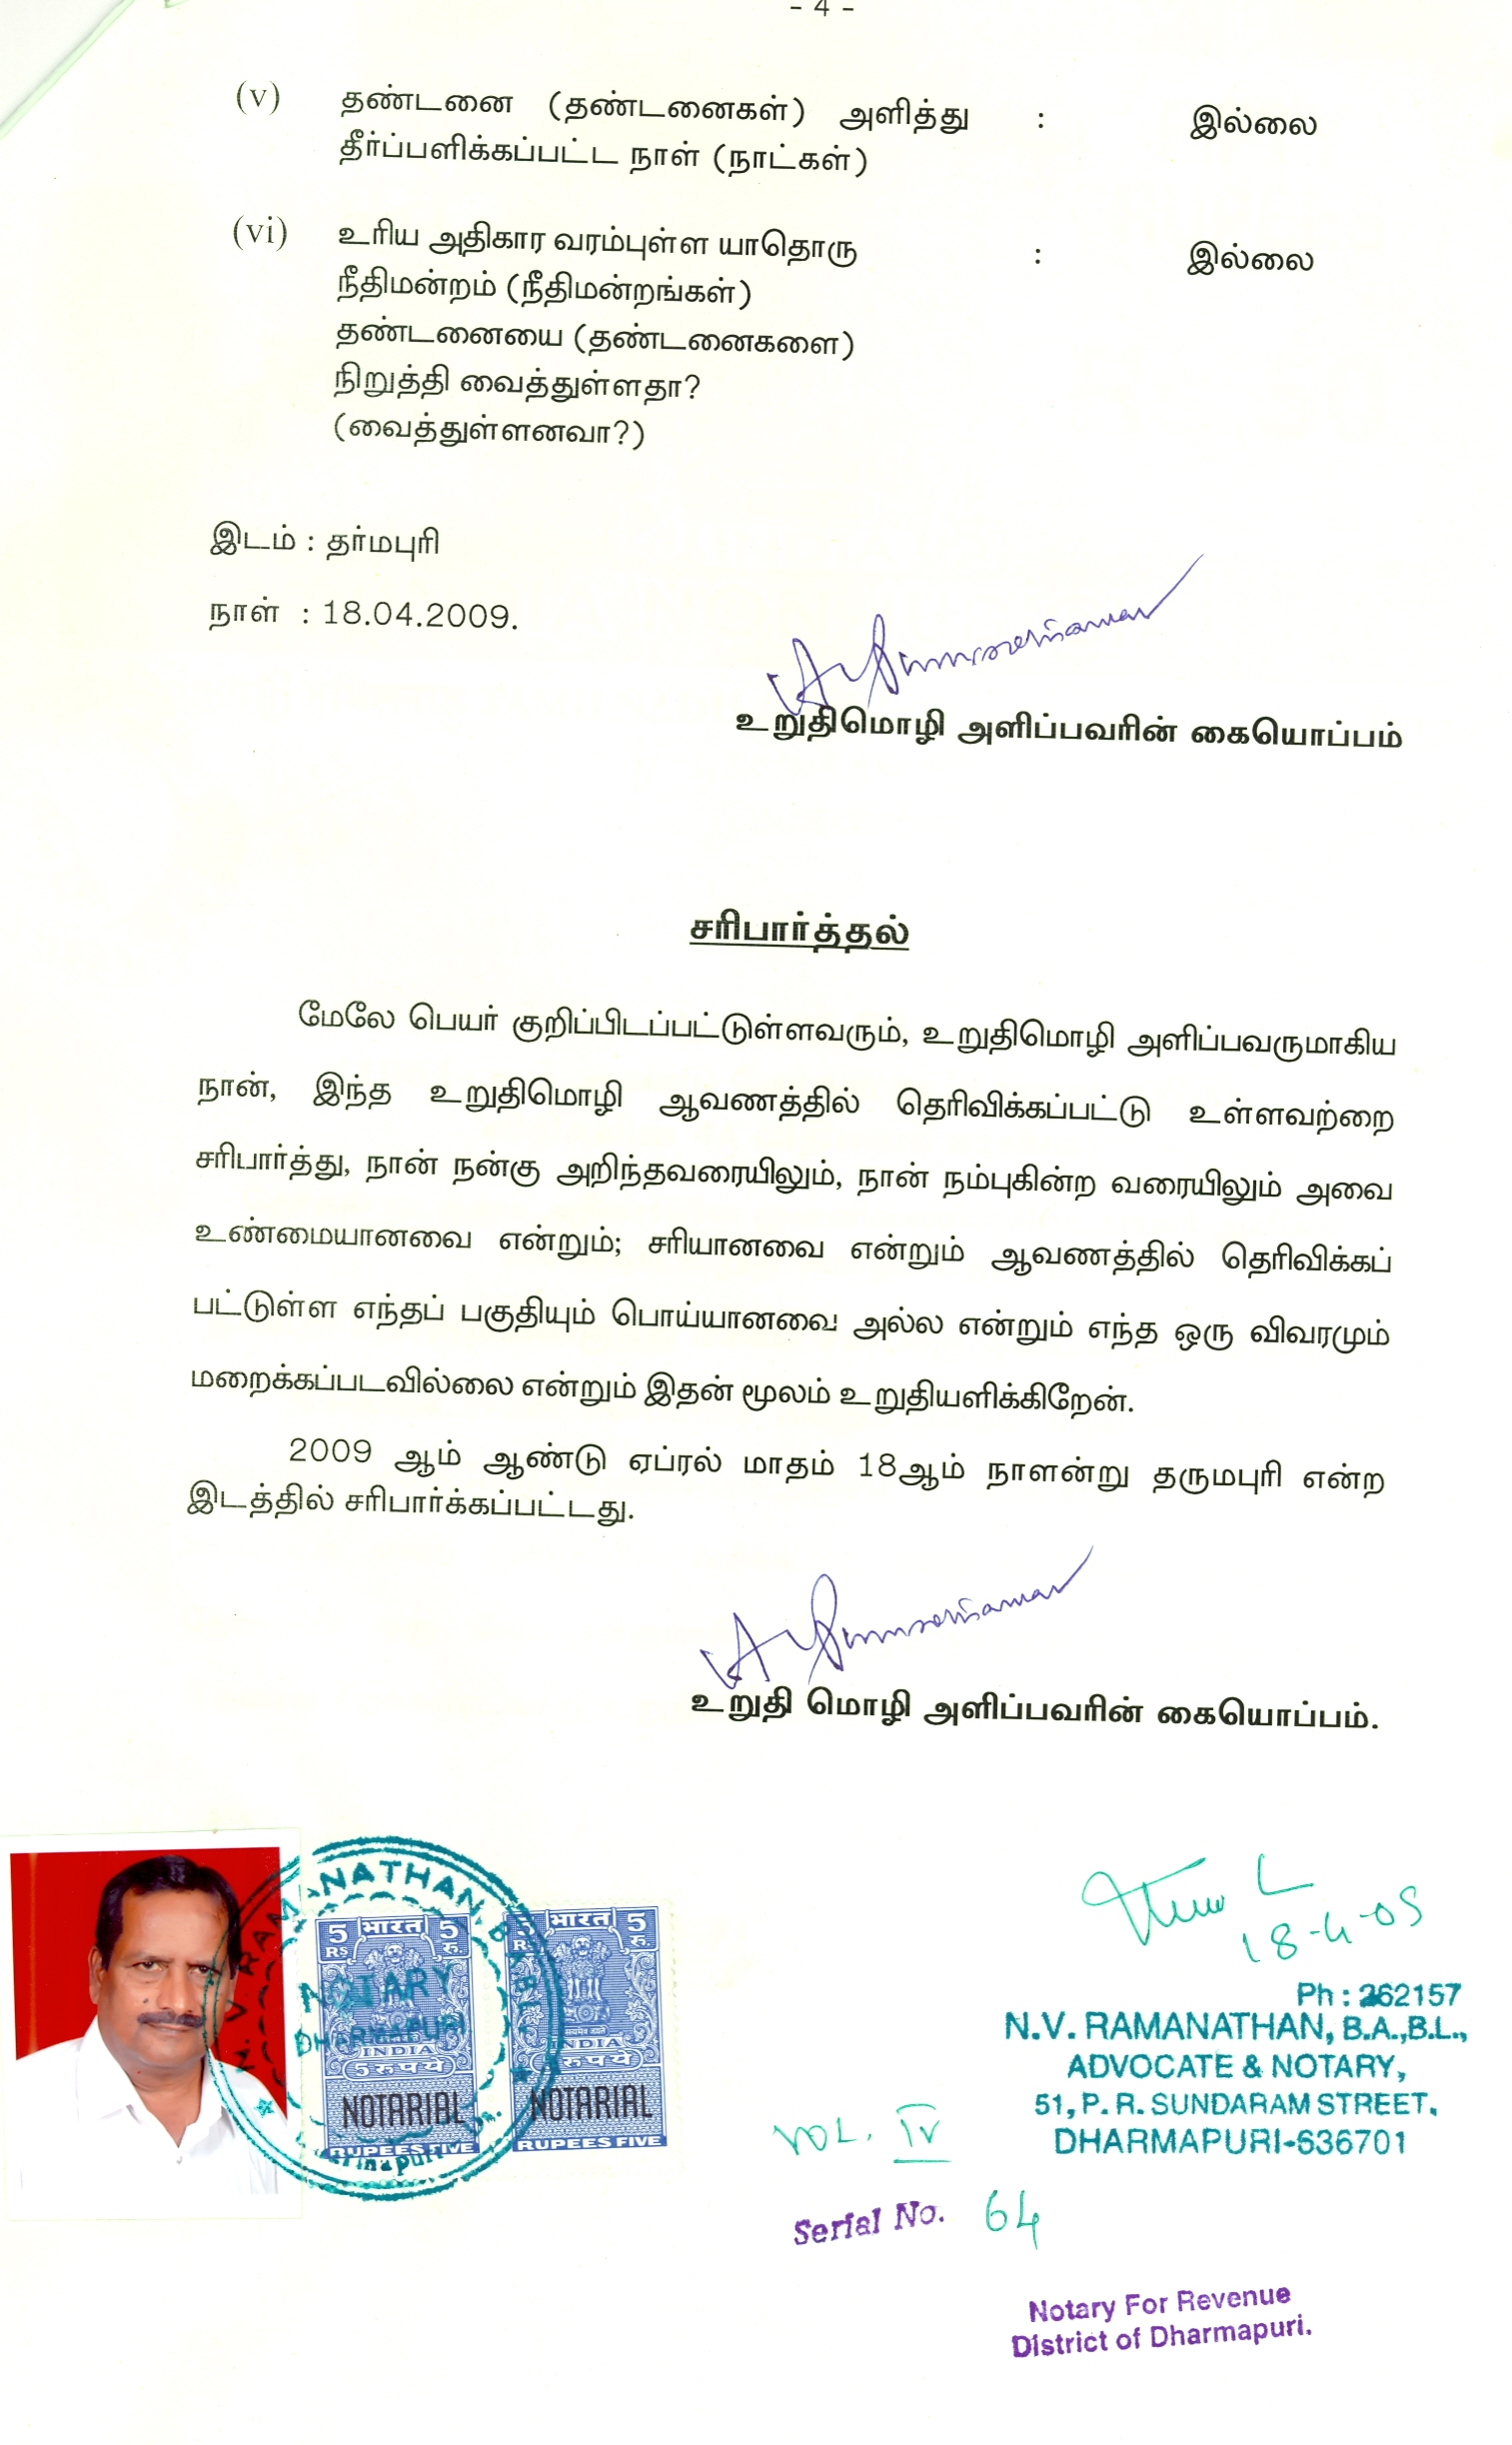 - 4 -
(v) தண்டனை (தண்டனைகள்) அளித்து : இல்லை
தீர்ப்பளிக்கப்பட்ட நாள் (நாட்கள்)
(vi) உரிய அதிகார வரம்புள்ள யாதொரு : இல்லை
நீதிமன்றம் (நீதிமன்றங்கள்)
தண்டனையை (தண்டனைகளை)
நிறுத்தி வைத்துள்ளதா?
(வைத்துள்ளனவா?)
இடம் : தர்மபுரி
நாள் : 18.04.2009.
உறுதிமொழி அளிப்பவரின் கையொப்பம்
சரிபார்த்தல்
மேலே பெயர் குறிப்பிடப்பட்டுள்ளவரும், உறுதிமொழி அளிப்பவருமாகிய
நான், இந்த உறுதிமொழி ஆவணத்தில் தெரிவிக்கப்பட்டு உள்ளவற்றை
சரிபார்த்து, நான் நன்கு அறிந்தவரையிலும், நான் நம்புகின்ற வரையிலும் அவை
உண்மையானவை என்றும்; சரியானவை என்றும் ஆவணத்தில் தெரிவிக்கப்
பட்டுள்ள எந்தப் பகுதியும் பொய்யானவை அல்ல என்றும் எந்த ஒரு விவரமும்
மறைக்கப்படவில்லை என்றும் இதன் மூலம் உறுதியளிக்கிறேன்.
2009 ஆம் ஆண்டு ஏப்ரல் மாதம் 18ஆம் நாளன்று தருமபுரி என்ற
இடத்தில் சரிபார்க்கப்பட்டது.
உறுதி மொழி அளிப்பவரின் கையொப்பம்.
N.V. RAMANATHAN, B.A.B.L.
NOTARY
DHARMAPURI
5 भारत 5
RS रु.
INDIA
5 रुपये
NOTARIAL
RUPEES FIVE
5 भारत 5
RS रु.
INDIA
5 रुपये
NOTARIAL
RUPEES FIVE
18-4-09
Ph : 262157
N.V. RAMANATHAN, B.A.,B.L.,
ADVOCATE & NOTARY,
51, P. R. SUNDARAM STREET,
DHARMAPURI-636701
VOL. IV
Serial No. 64
Notary For Revenue
District of Dharmapuri.